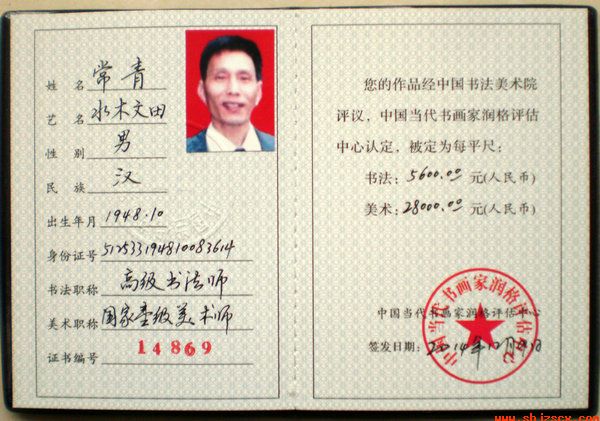 姓 名 常青
艺 名 水木文田
性 别 男
民 族 汉
出生年月 1948.10
身份证号 512533194810083614
书法职称 高级书法师
美术职称 国家壹级美术师
证书编号 14869
您的作品经中国书法美术院
评议，中国当代书画家润格评估
中心认定，被定为每平尺：
书法：5600.00 元(人民币)
美术：28000.00 元(人民币)
中国当代书画家润格评估中心
中国当代书画家润格评估中心
签发日期：2014年
www.shizscx.com